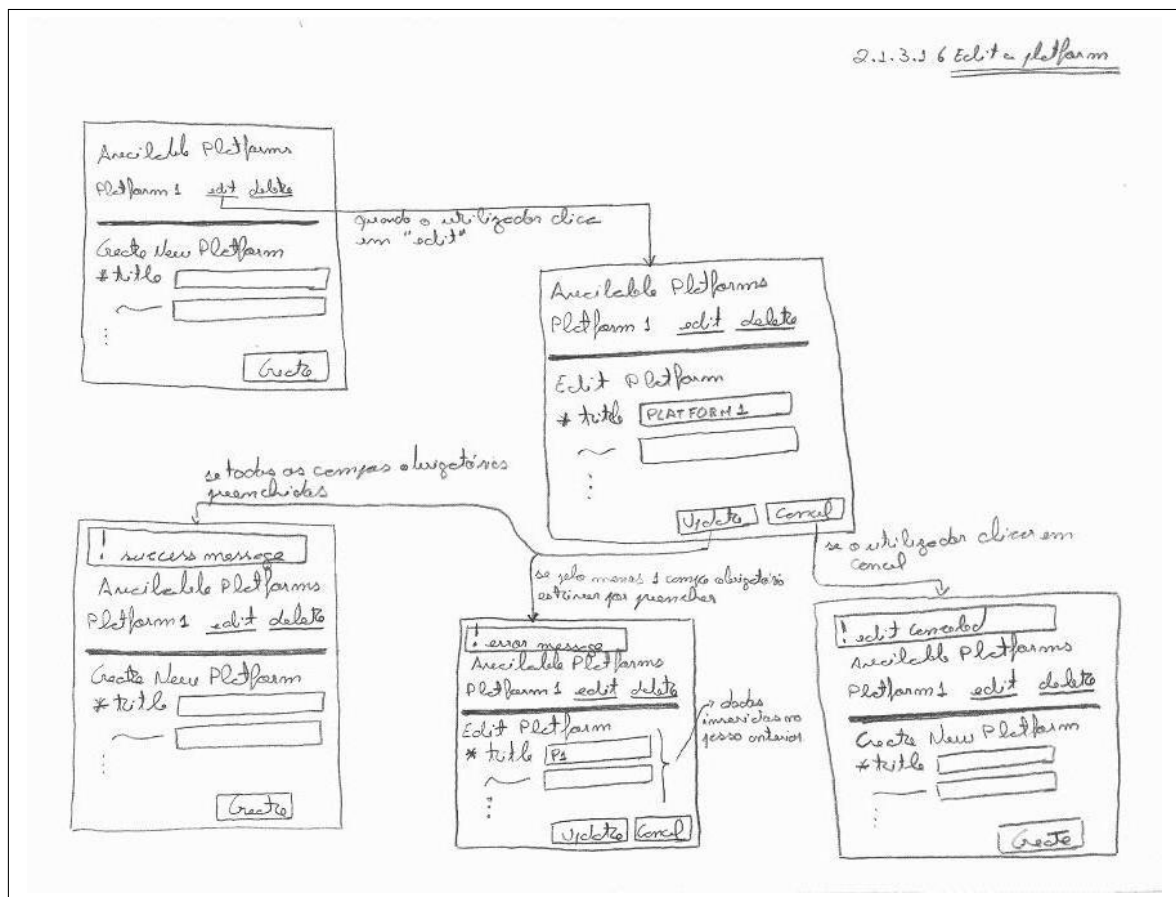 2.1.3.1 6 Edit a platform
Available Platforms
Platform 1 edit delete
Create New Platform
* title
Create
quando o utilizador clica
em "edit"
Available Platforms
Platform 1 edit delete
Edit Platform
* title PLATFORM 1
Update Cancel
se todos os campos obrigatórios
preenchidos
! success message
Available Platforms
Platform 1 edit delete
Create New Platform
* title
Create
se pelo menos 1 campo obrigatório
estiver por preencher
! error message
Available Platforms
Platform 1 edit delete
Edit Platform
* title P1
Update Cancel
dados
inseridos no
passo anterior
se o utilizador clicar em
Cancel
! edit canceled
Available Platforms
Platform 1 edit delete
Create New Platform
* title
Create